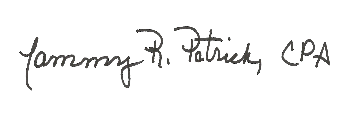 Tammy R. Patrick, CPA